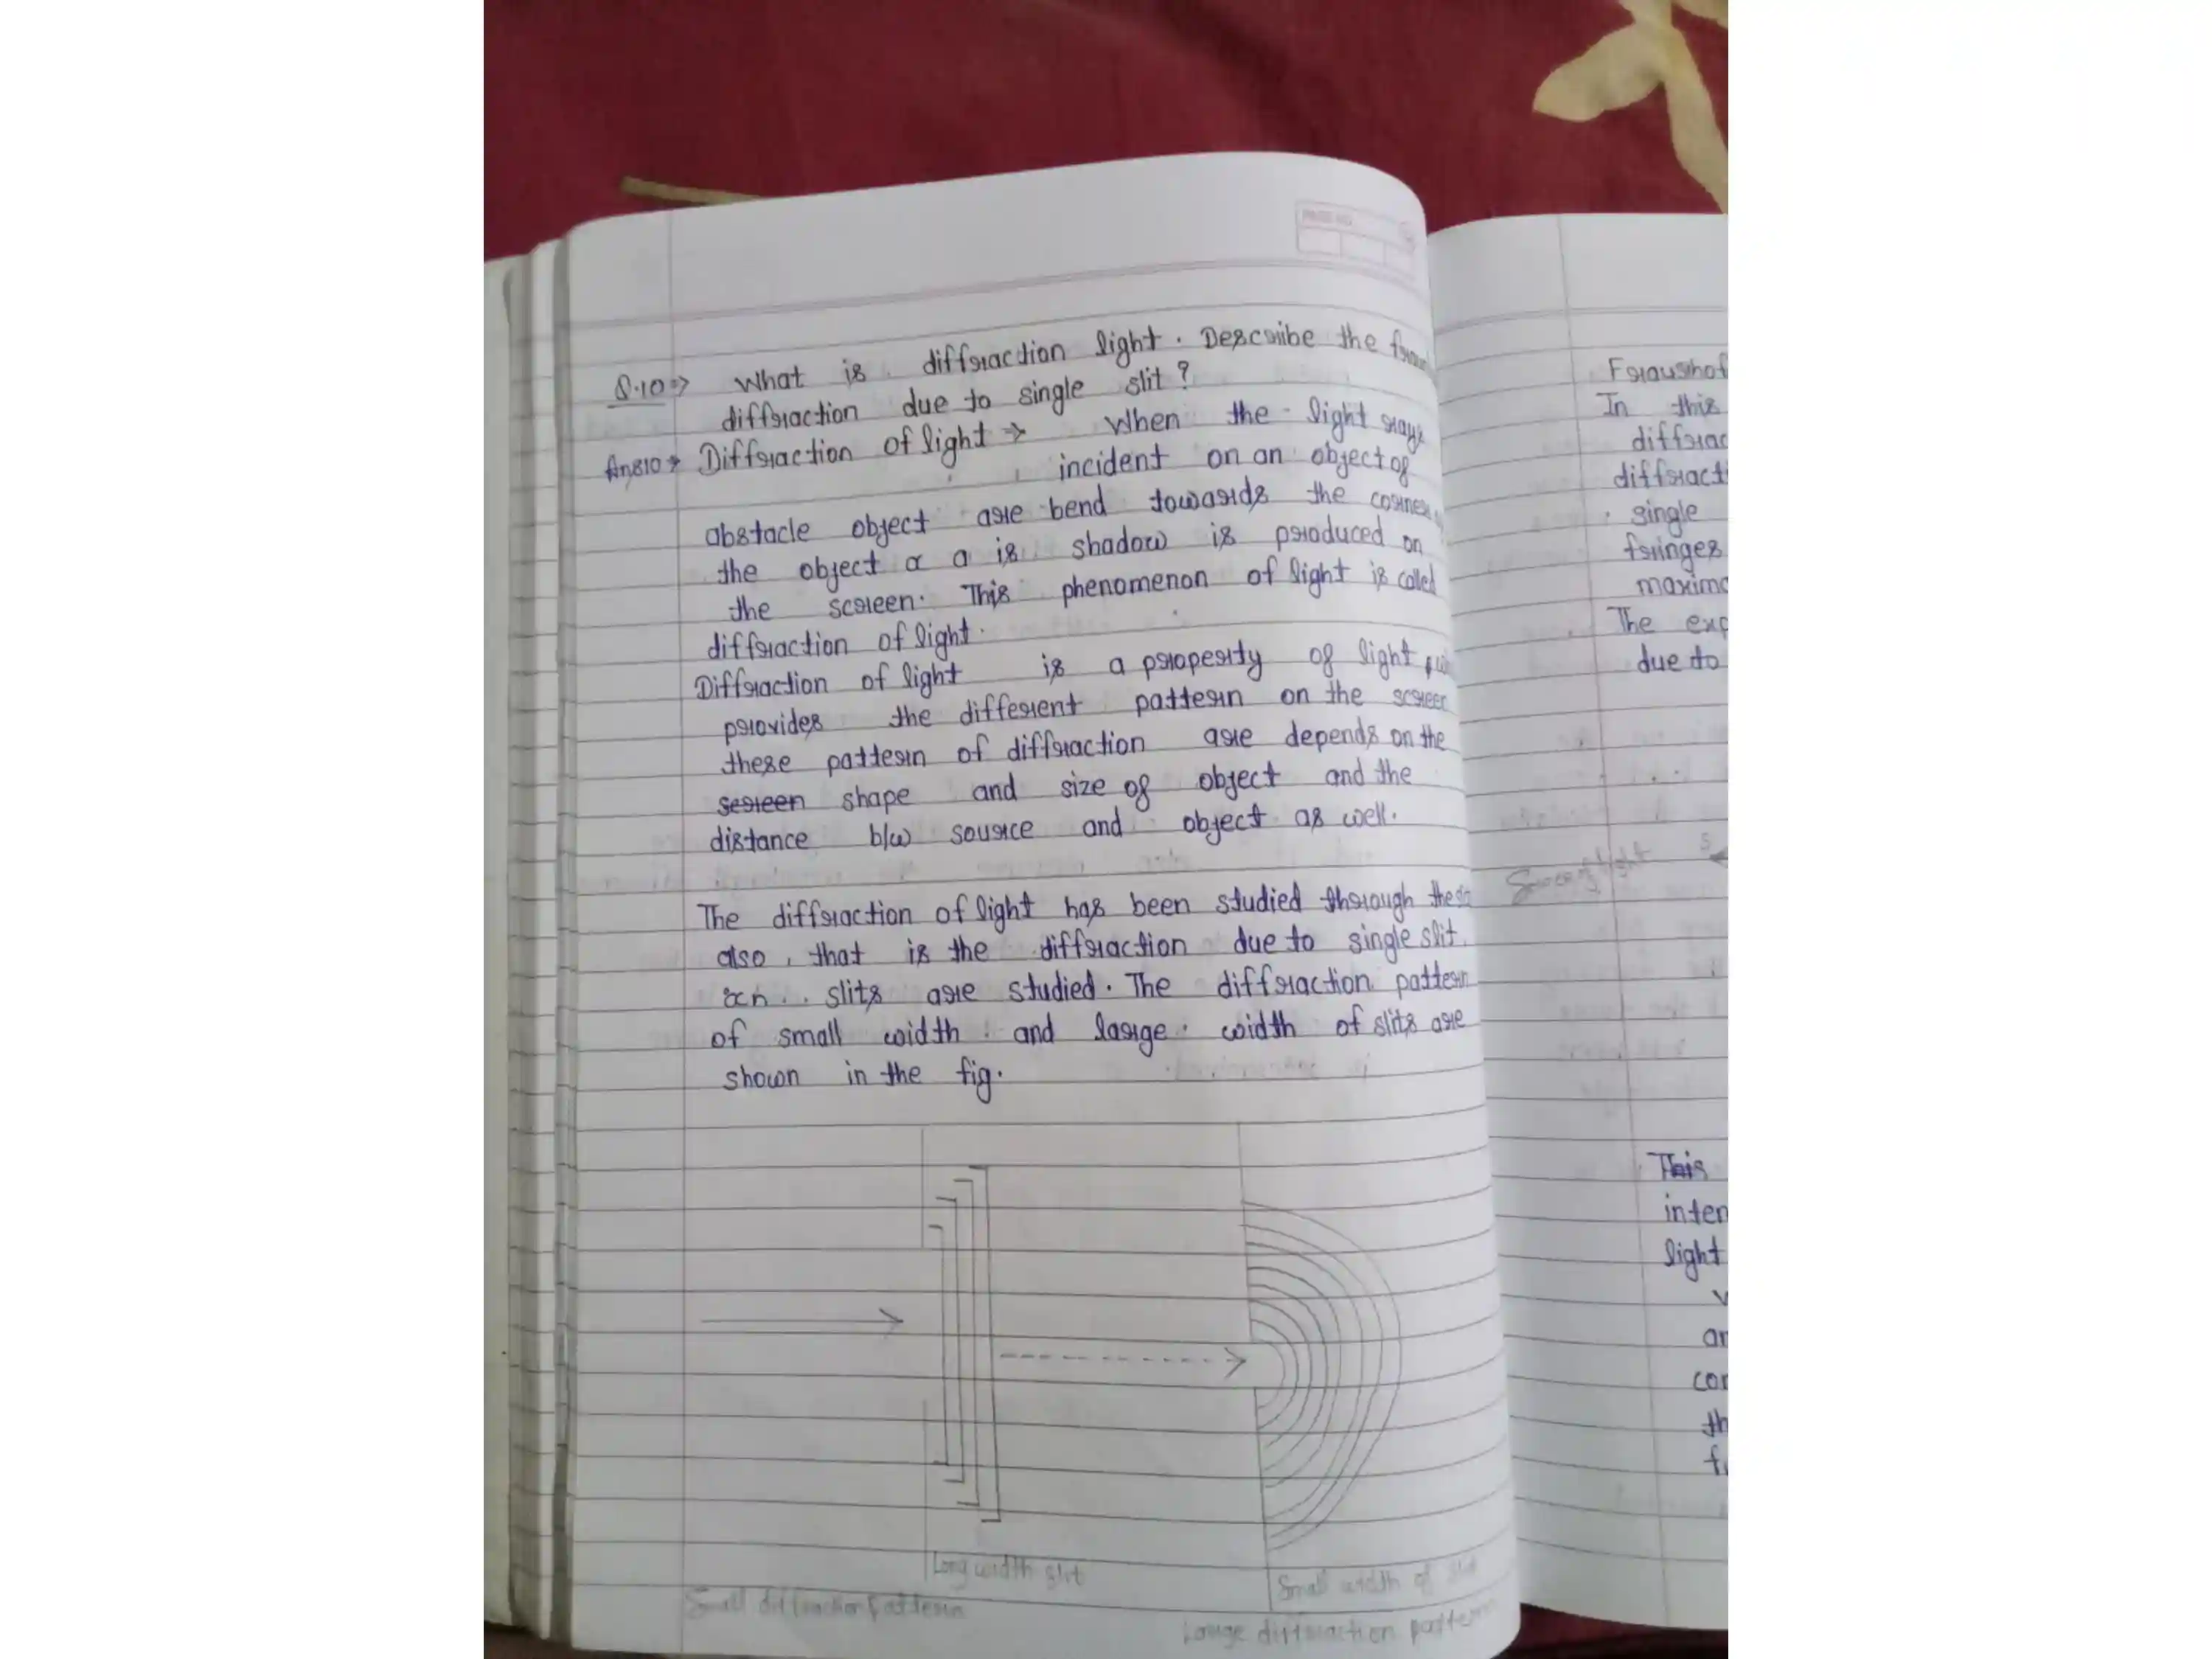 PAGE NO.
Q.10 => What is diffraction light. Describe the
diffraction due to single slit?
Ans10 → Diffraction of light => When the light rays
incident on an object of
abstacle object are bend towards the corner
the object α a is shadow is produced on
the screen. This phenomenon of light is called
diffraction of light.
Diffraction of light is a property of light
provides the different pattern on the screen
these pattern of diffraction are depends on the
screen shape and size of object and the
distance b/w source and object as well.
The diffraction of light has been studied through the
also, that is the diffraction due to single slit
slits are studied. The diffraction pattern
of small width and large width of slits are
shown in the fig.
Long width slit
Small diffraction pattern
Small width of slit
Large diffraction pattern
Fraunhof
In this
diffrac
diffracti
single
fringes
maxima
The exp
due to
Source of light S
This
inten
light